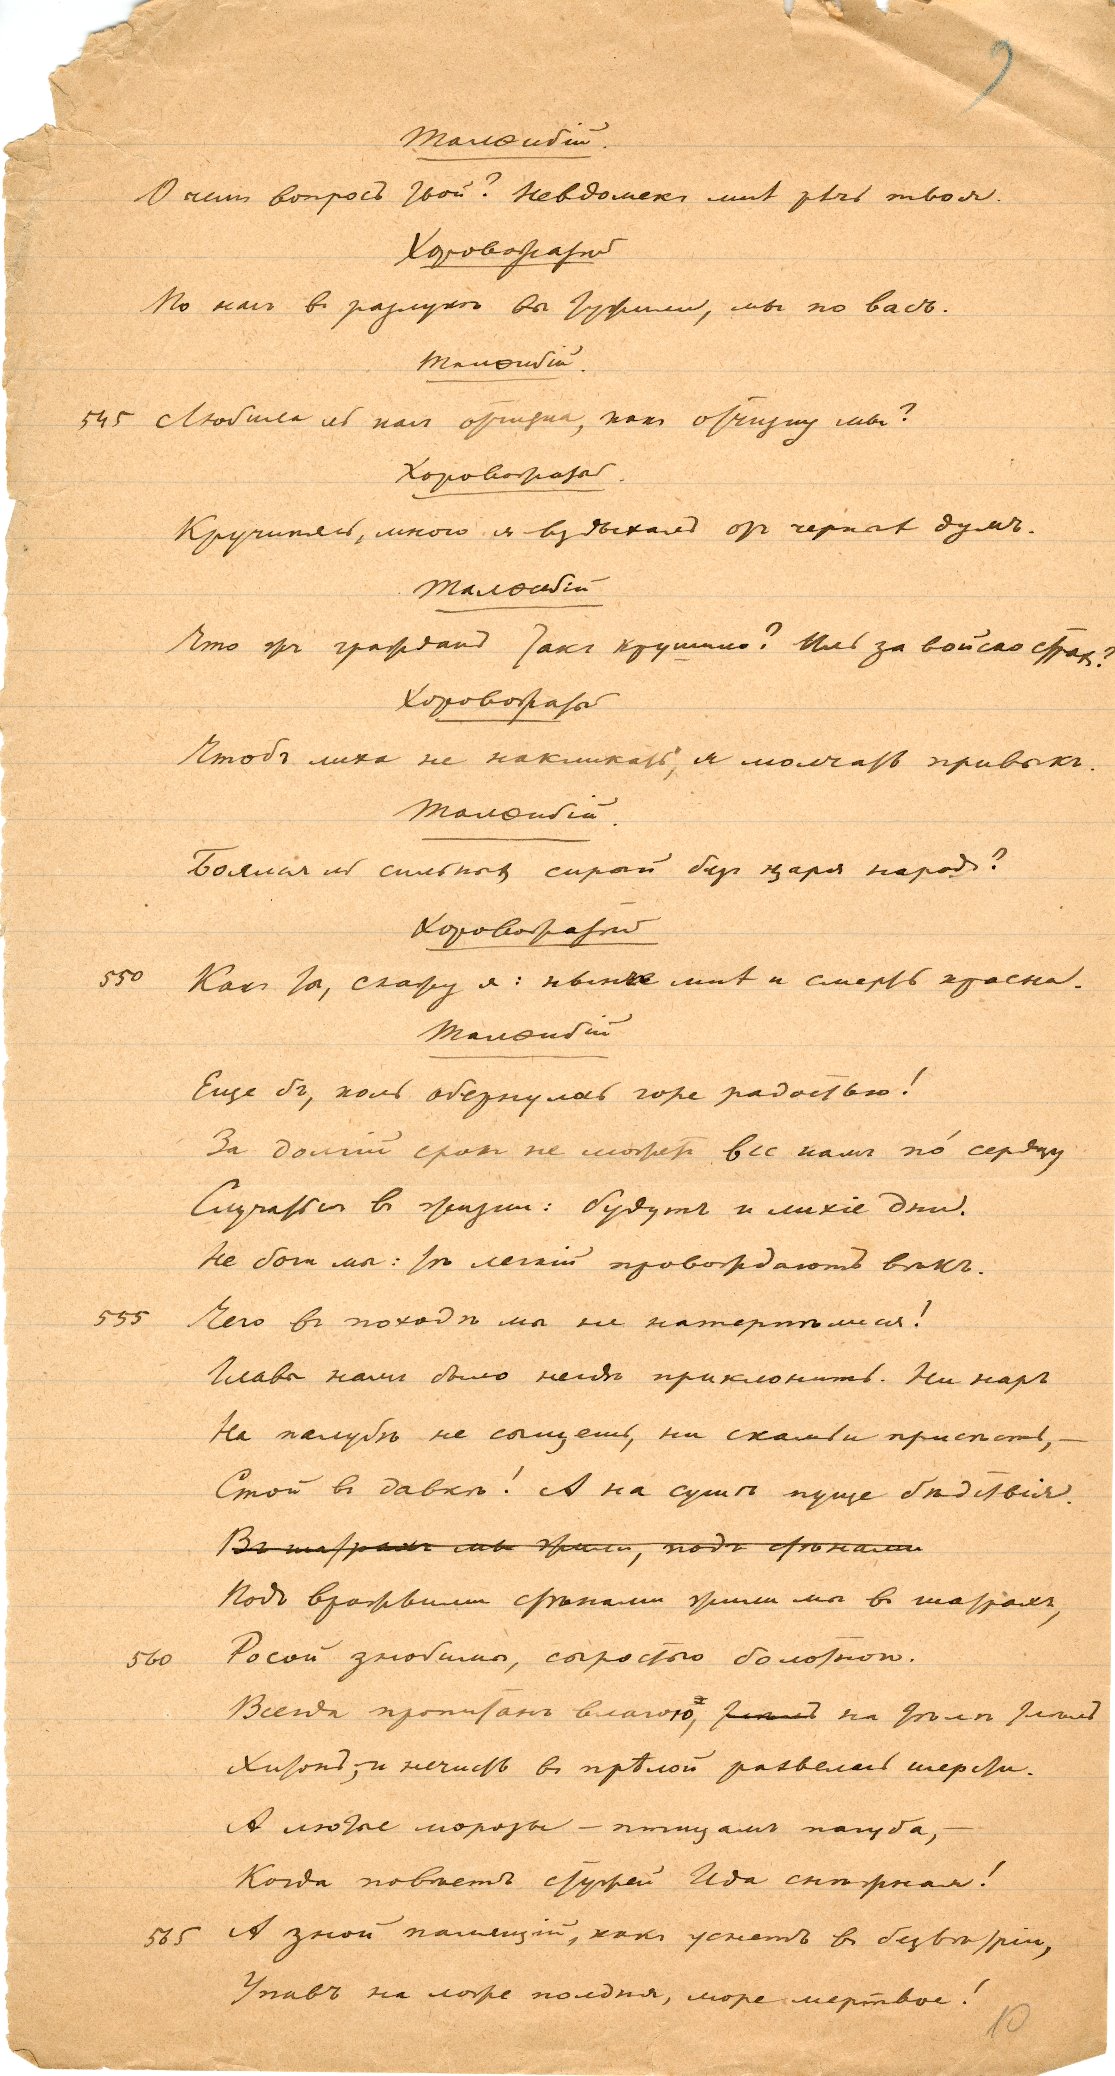 9
Талѳибій.
О чемъ вопросъ твой? Невдомекъ мнѣ рѣчь твоя.
Хоровожатый
По насъ въ разлукѣ вы тужили, мы по васъ.
Талѳибій.
545 Любила ль насъ отчизна, какъ отчизну мы?
Хоровожатый.
Кручинясь, много я вздыхалъ отъ черныхъ думъ.
Талѳибій
Что жъ гражданъ такъ крушило? Иль за войско страхъ?
Хоровожатый
Чтобъ лиха не накликать, я молчать привыкъ.
Талѳибій.
Боялся ль сильныхъ сирый безъ царя народъ?
Хоровожатый
550 Какъ ты, скажу я: нынче мнѣ и смерть красна.
Талѳибій
Еще бъ, коль обернулось горе радостью!
За долгій срокъ не можетъ все намъ по́ сердцу
Случаться въ жизни: будутъ и лихіе дни.
Не боги мы: тѣ легкій провождаютъ вѣкъ.
555 Чего въ походѣ мы не натерпѣлися!
Главы намъ было негдѣ приклонить. Ни наръ
На палубѣ не сыщешь, ни скамьи присѣсть,—
Стой въ давкѣ! А на сушѣ пуще бѣдствія.
Въ шатрахъ мы жили, подъ стѣнами
Подъ вражьими стѣнами жили мы въ шатрахъ,
560 Росой знобимы, сыростью болотною.
Всегда пропитанъ влагою, тлѣлъ на тѣлѣ тлѣлъ
Хитонъ, и нечисть въ прѣлой развелась шерсти.
А лютые морозы — птицамъ пагуба,—
Когда повѣетъ стужей Ида снѣжная!
565 А зной палящій, какъ уснетъ въ безвѣтріи,
Упавъ на ложе полдня, море мертвое!
10